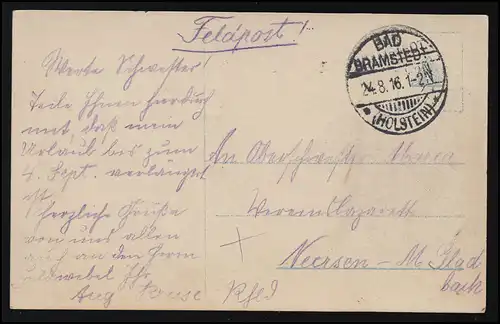 Feldpost!
BAD
BRAMSTEDT
24.8.16.1-2N
(HOLSTEIN)
Werte Schwester!
Teile Ihnen hierdurch
mit, daß mein
Urlaub bis zum
4. Sept. verlängert
ist
Herzliche Grüße
von uns allen
auch an den Herrn
Feldwebel Ihr
Aug
An Oberschwester
Vereinslazarett
Neersen - M. Glad
bach
Rhld